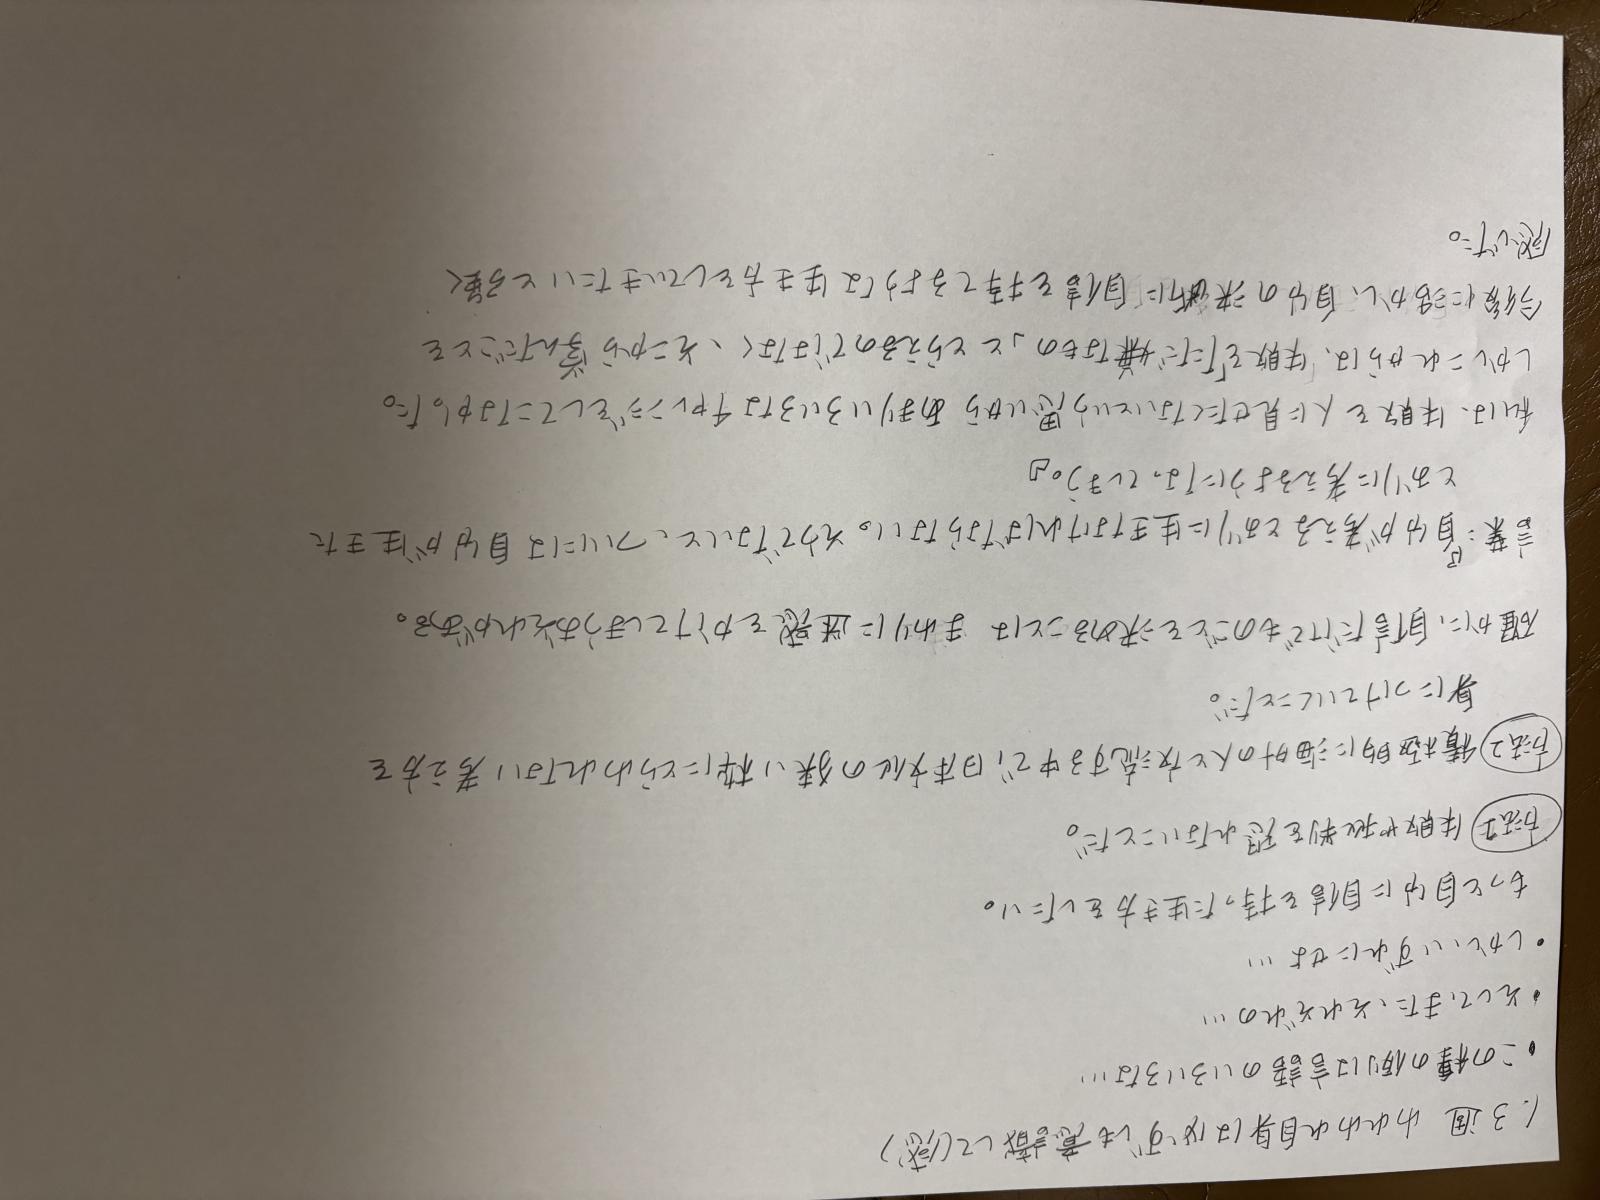 1.3週 われわれ自身は必ずしも意識して(惑)
・この種の例は言語のいろいろな…
・そして、また、それぞれの…
・しかし、いずれにせよ…
もっと自分に自信を持った生き方をしたい。
方法1 失敗や批判を恐れないことだ。
方法2 積極的に海外の人と交流する中で、日本文化の狭い枠にとらわれない考え方を
身につけていくことだ。
確かに、自信だけでものごとを決めることは まわりに迷惑をかけてしまうおそれがある。
言葉:『自分が考えるとおりに生きなければならない。そうでないと、ついには自分が生きた
とおりに考えるようになってしまう。』
私は、失敗を人に見せたくないという思いから あまりいろいろなチャレンジをしてこなかった。
しかしこれからは、失敗を「ただ嫌なもの」ととらえるのではなく、そこから学んだことを
今後に活かし、自分の決断に自信を持てるような生き方をしていきたいと強く
感じた。